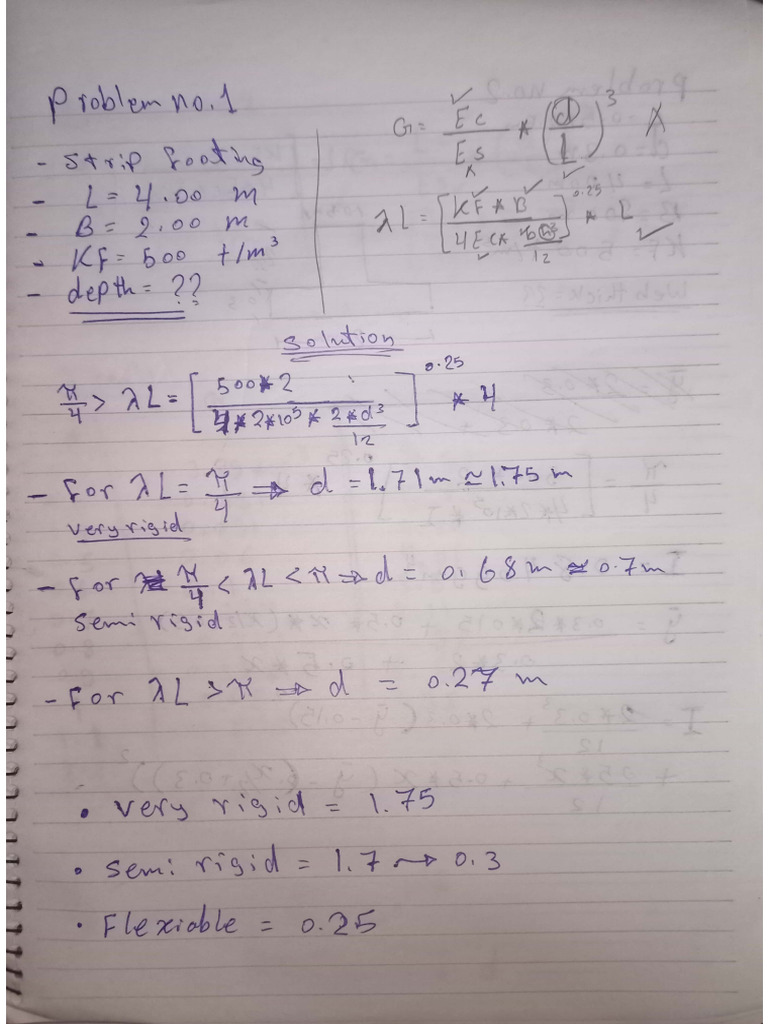 Problem no.1
- strip footing
- L = 4.00 m
- B = 2.00 m
- KF = 500 t/m³
- depth = ??
G = Ec/Es * (d/L)³ X
λL = [KF * B / 4Ec * bd³/12]^0.25 * L
Solution
π/4 > λL = [500*2 / 4*2*10⁵ * 2*d³/12]^0.25 * 4
- For λL = π/4 ⇒ d = 1.71m ≃ 1.75 m
very rigid
- For π/4 < λL < π ⇒ d = 0.68m ≃ 0.7m
Semi rigid
- For λL > π ⇒ d = 0.27 m
• very rigid = 1.75
• semi rigid = 1.7 → 0.3
• Flexiable = 0.25